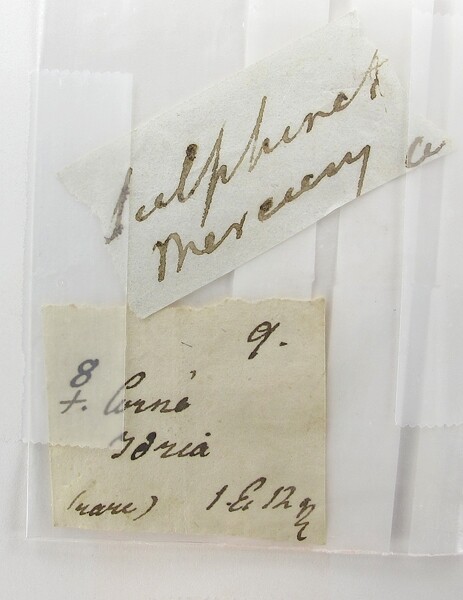 Sulphuret
Mercury a
9.
8
+. Corné
Idria
(rare) 1